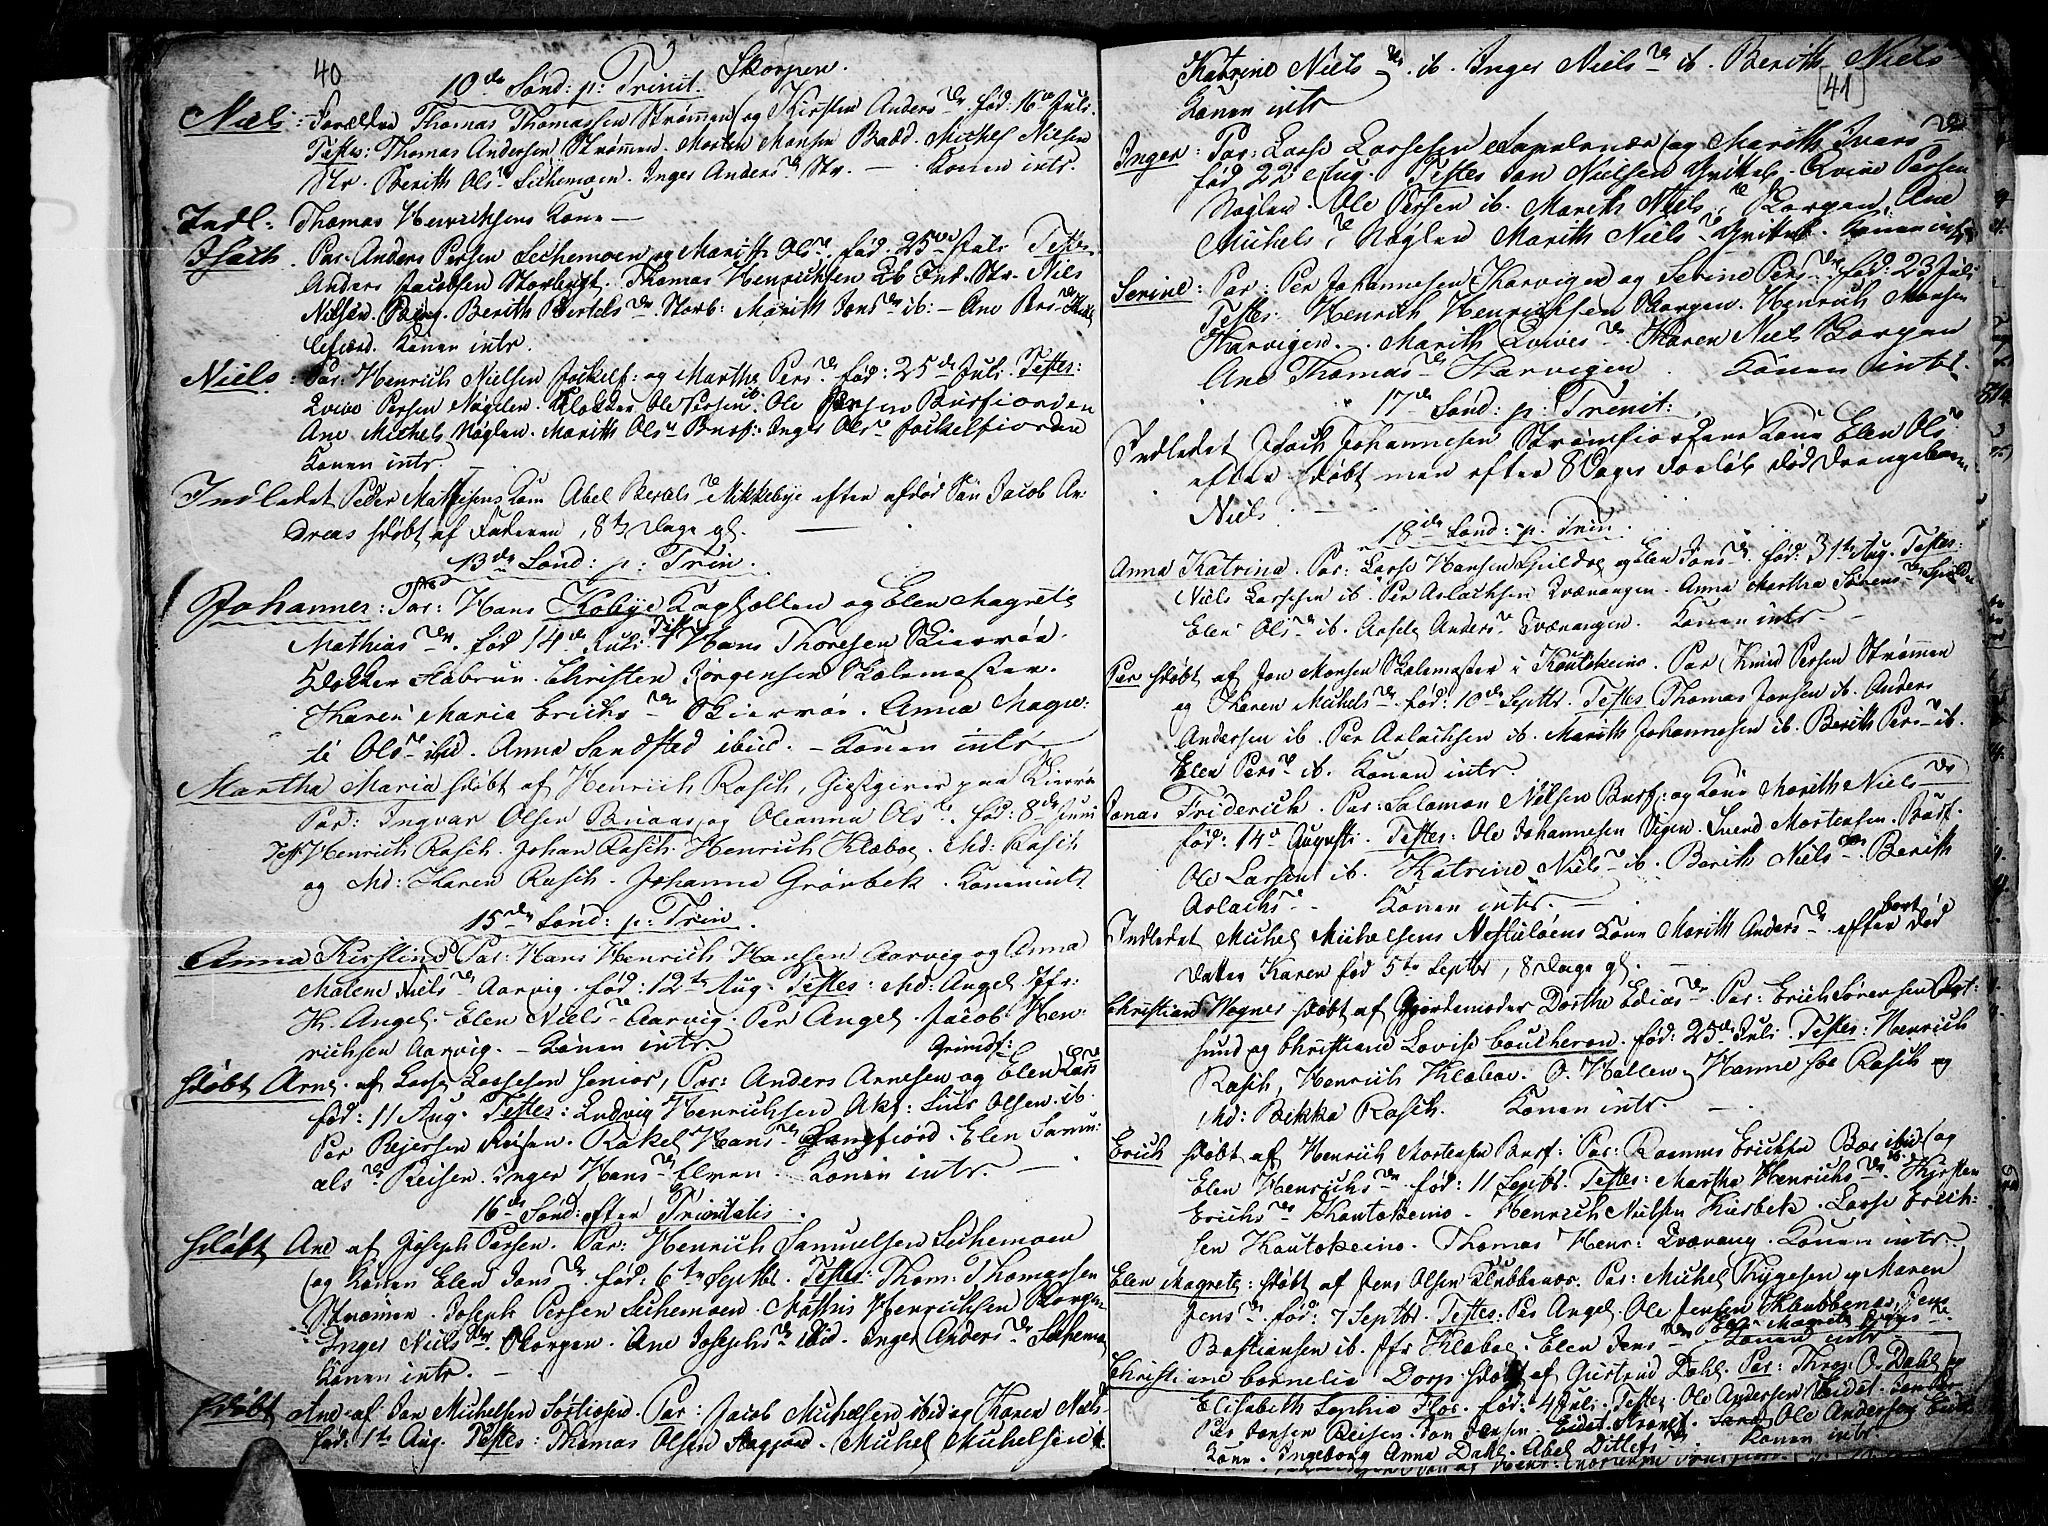 40
10de Sønd: p: Trinit. Skorpen.
Niels: Forældre Thomas Thomassen Strømmen (og Kirsten Andersdr. fød: 16de Juli.
Testes: Thomas Andersen Strømmen. Morten Monsen Badd. Michel Nielsen
Str. Berith Olsdr Lichemoen. Inger Andersdr Str. — Konen intr.
Indl: Thomas Henrichsens Kone —
Isach. Par. Anders Persen Lichemoen og Marith Olsdr. fød. 25de Juli Testes
Anders Jacobsen Storbugt. Thomas Henrichsen Str. Niels
Nielsen. Berith Bertelsdr Storb: Marith Jonsdr ib: — Ane Persdr
Konen intr.
Niels: Par: Henrich Nielsen Jøckelf: og Martha Persdr. fød: 25de Juli. Testes:
Qvive Persen Nøglen. Klokker Ole Persen ib. Ole Persen Burfiorden
Ane Michels Nøglen. Marith Olsdr Burf: Inger Olsdr Jøckelfiorden
Konen intr.
Indledet Peder Mathisens Kone Abel Bertelsdr Mikkebye efter afdød Søn Jacob An-
dreas hdøbt af Faderen, 8te Dage gl.
13de Sønd: p: Trin.
Johannes: Par: Hans Kobye Kagsællen og Elen Magrete
Mathiasdr. fød 14de Juli. Test: Hans Thoresen Skiervøe.
Klokker Høbrun. Christen Jørgensen Skolemester.
Karen Maria Erichsdr Skiervøe. Anna Magre-
te Olsdr ibid. Anna Sandsted ibid. — Konen intr.
Martha Maria hdøbt af Henrich Rasch, Giestgiver paa Skiervøe
Par: Ingvar Olsen Bruaas og Oleanna Olsdr. fød: 8de Juni
Test: Henrich Rasch. Johan Rasch. Henrich Klæboe. Md: Rasch
og Md: Karen Rasch. Johanna Grørbek. Konen intr.
15de Sønd: p: Trin.
Anna Kirstine Par: Hans Henrich Hansen Aarvig og Anna
Malene Nielsdr Aarvig. fød: 12te Aug. Testes: Md: Angel Jfr:
Hr. Angel. Elen Nielsdr Aarvig. Per Angel. Jacob Hen-
richsen Aarvig. — Konen intr.
hdøbt Arne. af Lasse Lassesen senior, Par: Anders Arnesen Grimsf: og Elen Larsdr
fød: 11 Aug. Testes: Ludvig Henrichsen Akf: Siur Olsen ib.
Per Bejersen Reisen. Rakel Hansdr Langfiord. Elen Samu-
elsdr Reisen. Inger Hansdr Elven. Konen intr. —
16de Sønd: efter Trinitatis.
hdøbt Ane af Joseph Persen. Par: Henrich Samuelsen Lichemoen
(og Konen Elen Jonsdr. fød: 6te Septbr. Testes: Thom: Thomassen
Strømmen. Joseph Persen Lichemoen. Mathis Henrichsen Skorpen
Inger Nielsdr Skorpen. Ane Josephsdr ibid. Inger Andersdr Lichemoen
Konen intr. —
hdøbt Ane af Jon Michelsen Sørtiosen. Par: Jacob Michelsen ibid og Karen Niels-
fød: 1te Aug. Testes: Thomas Olsen Aagjord. Michel Michelsen
Katrine Nielsdr. ib. Inger Nielsdr ib. Berith Niels
[41]
Konen intr.
Inger: Par: Lasse Lassesen (og Marith Ivarsdr
fød 22 Aug. Testes Jon Nielsen Gritel. Qvive Persen
Nøglen. Ole Persen ib. Marith Nielsdr Skorpen, Ane
Michelsdr Nøglen Marith Nielsdr Konen intr.
Serine: Par: Per Johannesen Harvigen og Serine Persdr fød: 23 Juli
Testes: Henrich Henrichsen Skorpen. Henrich Monsen
Harvigen. Marith Qvivesdr. Karen Niels Skorpen
Ane Thomasdr Harvigen. Konen intr.
17de Sønd: p: Trinit:
Indledet Isach Johannesen Strømfiordens Kone Elen Olsdr
efter hdøbt men efter 8 Dages Forløb død Drengebarn
Niels. —
18de Sønd: p: Trin.
Anna Katrina. Par: Lasse Hansen Spildre og Elen Jonsdr fød: 31te Aug. Testes:
Niels Lassesen ib. Per Aslachsen Qvænangen. Anna Martha Sørensdr Spildre
Elen Olsdr ib. Aasele Andersdr Qvænangen. Konen intr. —
Per hdøbt af Jon Monsen Skolemester i Koutokeino. Par (Knud Persen Strømmen
og Karen Michelsdr. fød: 10de Septbr. Testes Thomas Jonsen ib. Anders
Andersen ib. Per Aslachsen ib. Marith Johannesen ib. Berith Persdr ib.
Elen Persdr ib. Konen intr.
Jonas Friderich. Par: Salomon Nilsen Burf: og Kone Marith Nielsdr
fød: 14de Augusti. Testes: Ole Johannesen Vigen. Svend Mortensen Burf.
Ole Larsen ib. Katrine Nielsdr ib. Berith Nielsdr. Berith
Aslachsdr — Konen intr. —
Indledet Michel Michelsens Kone Marith Andersdr efter bort død
Datter Karen fød 5te Septbr, 8 Dage gl. —
Christian Wogner hdøbt af Gjordemoder Dorthe Ediasdr. Par: Erich Sørensen
sund og Christiane Lovise boucheron. fød: 25de Juli. Testes: Henrich
Rasch, Henrich Klæboe. O. Hallen. Hanne Soe Rasch og
Md: Bekka Rasch. Konen intr. —
Erich hdøbt af Henrich Mortensen Burf: Par: Rasmus Erichsen Bær ibid (og
Elen Henrichsdr fød: 11 Septbr. Testes: Martha Henrichsdr ib. Kirsten
Erichsdr Koutokeino. Henrich Nielsen Kierbek. Lasse Erich-
sen Koutokeino. Thomas Henr: Qvænang. Konen intr:
Elen Magrete: hdøbt af Jens Olsen Klubbenes. Par: Michel Trygesen og Maren
Jensdr fød: 7 Septbr. Testes: Per Angel. Ole Jensen Klubbenes, Jens
Bastiansen ib. Jfr Klæboe. Elen Jensdr Elen Magrete
Konen intr
Christiane Cornelia Dorp. hdøbt af Gurtrud Dahl. Par: Thros O. Dahl og
Elisabeth Sophia Floe. fød: 4 Juli. Testes. Ole Andersen Eidet.
Per Jonsen Reisen. Jon Jensen. Ole Andersen
Kone. Ingeborg Anna Dahl. Abel Ditlefsdr. Konen intr